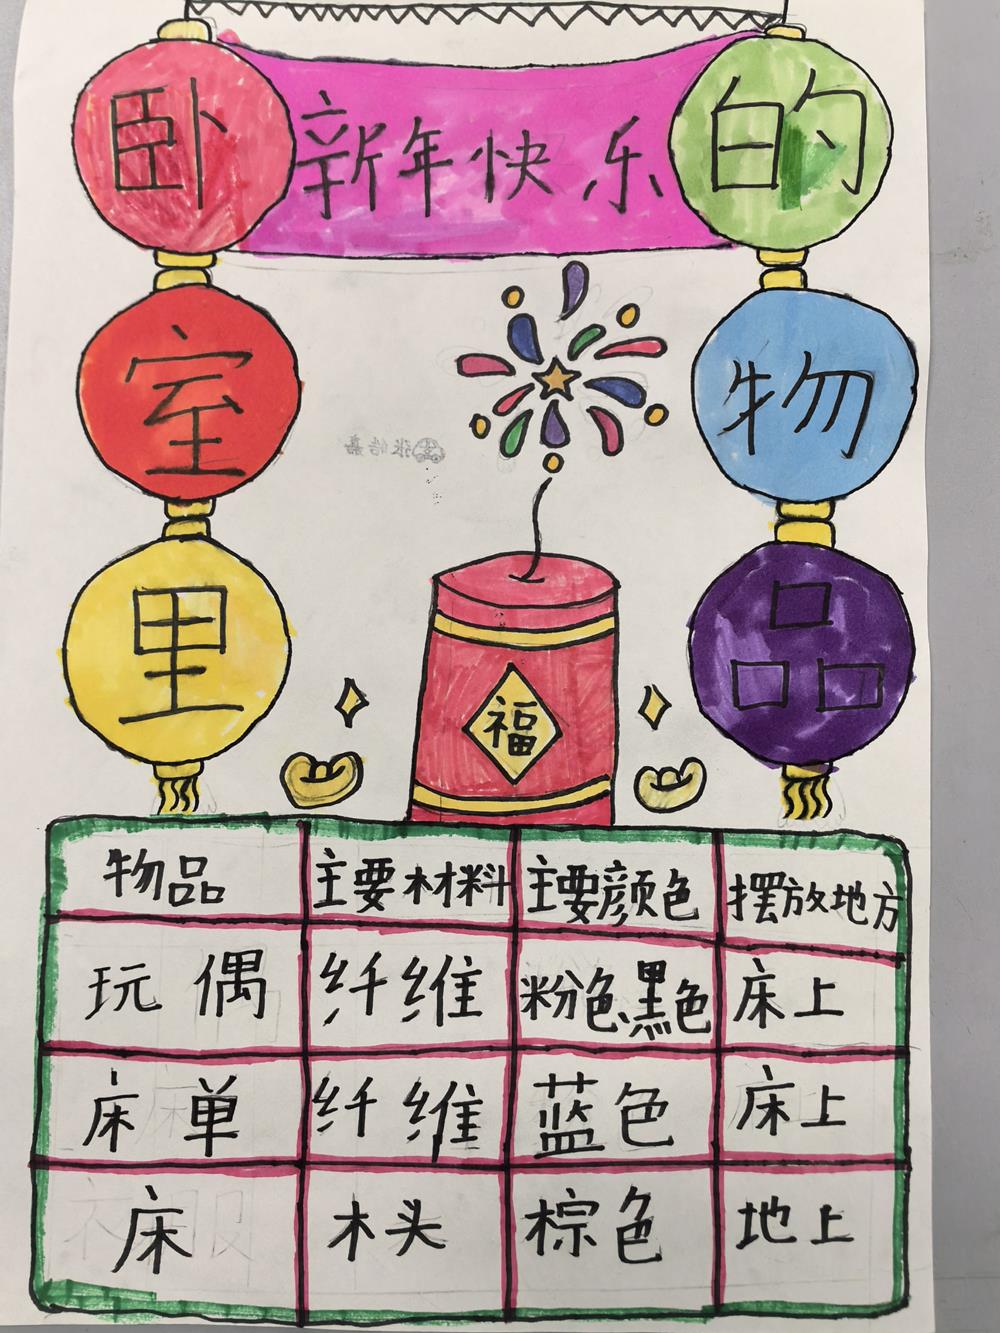 卧室里
的物品
新年快乐
张皓嘉
福
物品 主要材料 主要颜色 摆放地方
玩偶 纤维 粉色黑色 床上
床单 纤维 蓝色 床上
床 木头 棕色 地上